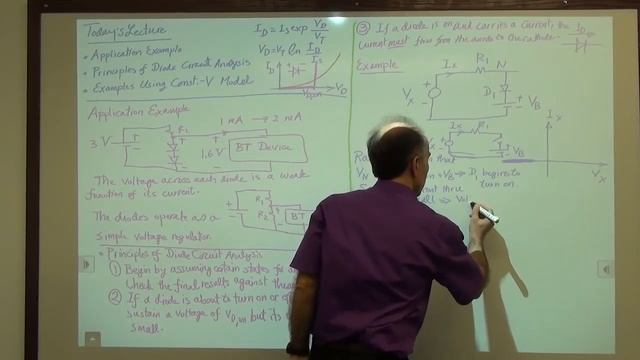 Today's Lecture
• Application Example
• Principles of Diode Circuit Analysis
• Examples Using Const.-V Model
I_D = I_S exp V_D / V_T
V_D = V_T ln I_D / I_S
I_D
V_D
V_D,on
Application Example
3V
R_1
1 mA → 2 mA
1.6V
BT Device
The voltage across each diode is a weak
function of its current.
The diodes operate as a
simple voltage regulator.
R_1
R_2
BT
• Principles of Diode Circuit Analysis
① Begin by assuming certain states for
Check the final results against the
② If a diode is about to turn on or
sustain a voltage of V_D,on but its
small.
③ If a diode is on and carries a current, the
current must flow from the anode to the cathode.
I_D
Example
I_x
R_1
N
V_x
D_1
V_B
I_x
R_1
V_B
I_x
V_x
that
V_N
V_B ⇒ D_1 begins to
turn on.
thru
⇒ Vol